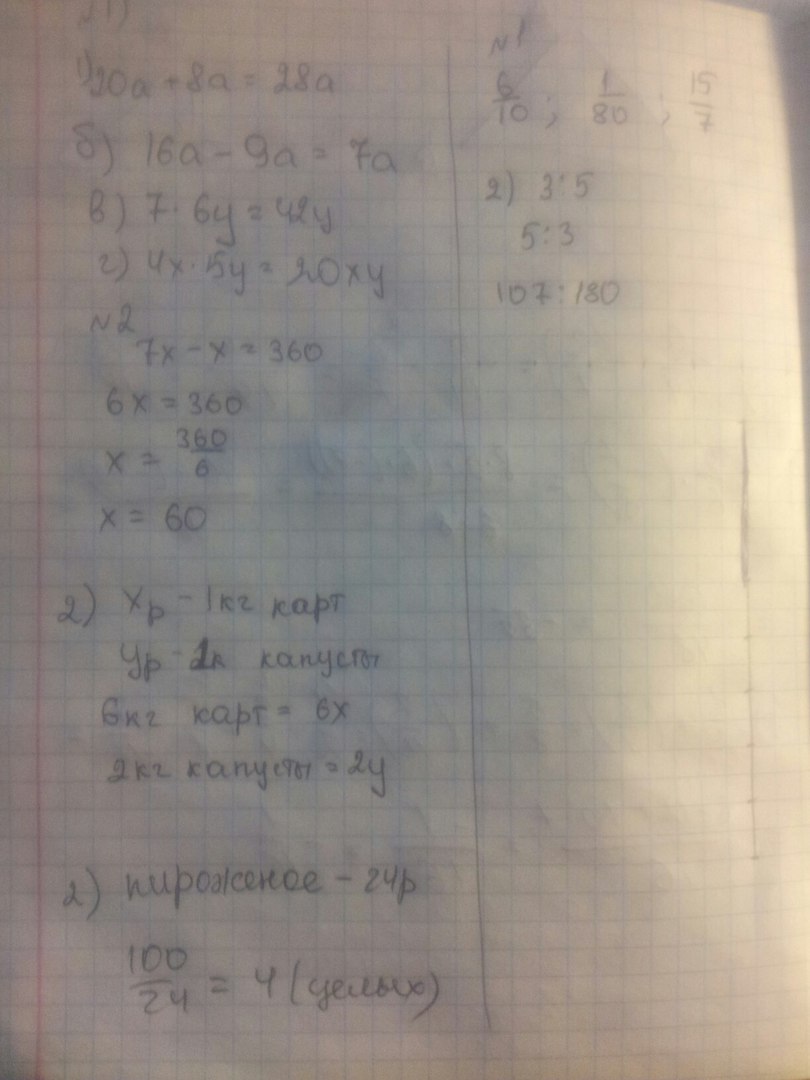 1) 20а + 8а = 28а
б) 16а - 9а = 7а
в) 7 · 6у = 42у
г) 4х · 5у = 20ху
№2
7х - х = 360
6х = 360
х = 360/6
х = 60
2) хр - 1кг карт
ур - 1к капусты
6кг карт = 6х
2кг капусты = 2у
2) пироженое - 24р
100/24 = 4 (целых)
№1
6/10 ; 1/80 ; 15/7
2) 3:5
5:3
107:180